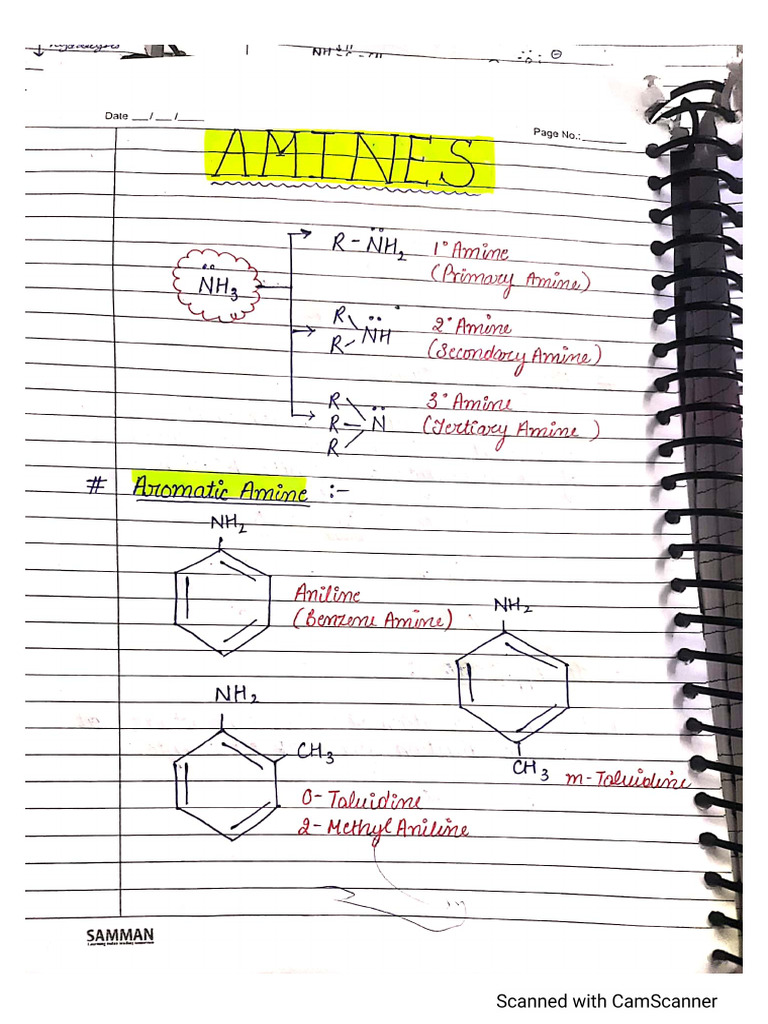 Date __/__/____
Page No.:______
AMINES
R-NH2 1° Amine
(Primary Amine)
NH3
R
R NH 2° Amine
(Secondary Amine)
R
R N 3° Amine
R (Tertiary Amine)
# Aromatic Amine :-
NH2
Aniline
(Benzene Amine)
NH2
NH2
CH3
CH3 m-Toluidine
O-Toluidine
2-Methyl Aniline
SAMMAN
Scanned with CamScanner